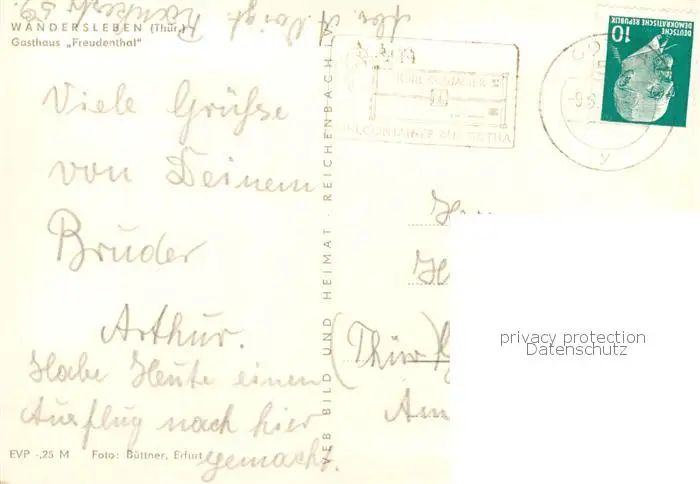 Abs. A. Voigt,
WANDERSLEBEN (Thür.)
Gasthaus „Freudenthal“
Viele Grüße
von Deinem
Bruder
Arthur.
Habe Heute einen
Ausflug nach hier
gemacht.
EVP -,25 M Foto: Büttner, Erfurt
VEB BILD UND HEIMAT · REICHENBACH I. V.
GOTHA
DEUTSCHE DEMOKRATISCHE REPUBLIK
10
(Thür)
Am
privacy protection
Datenschutz